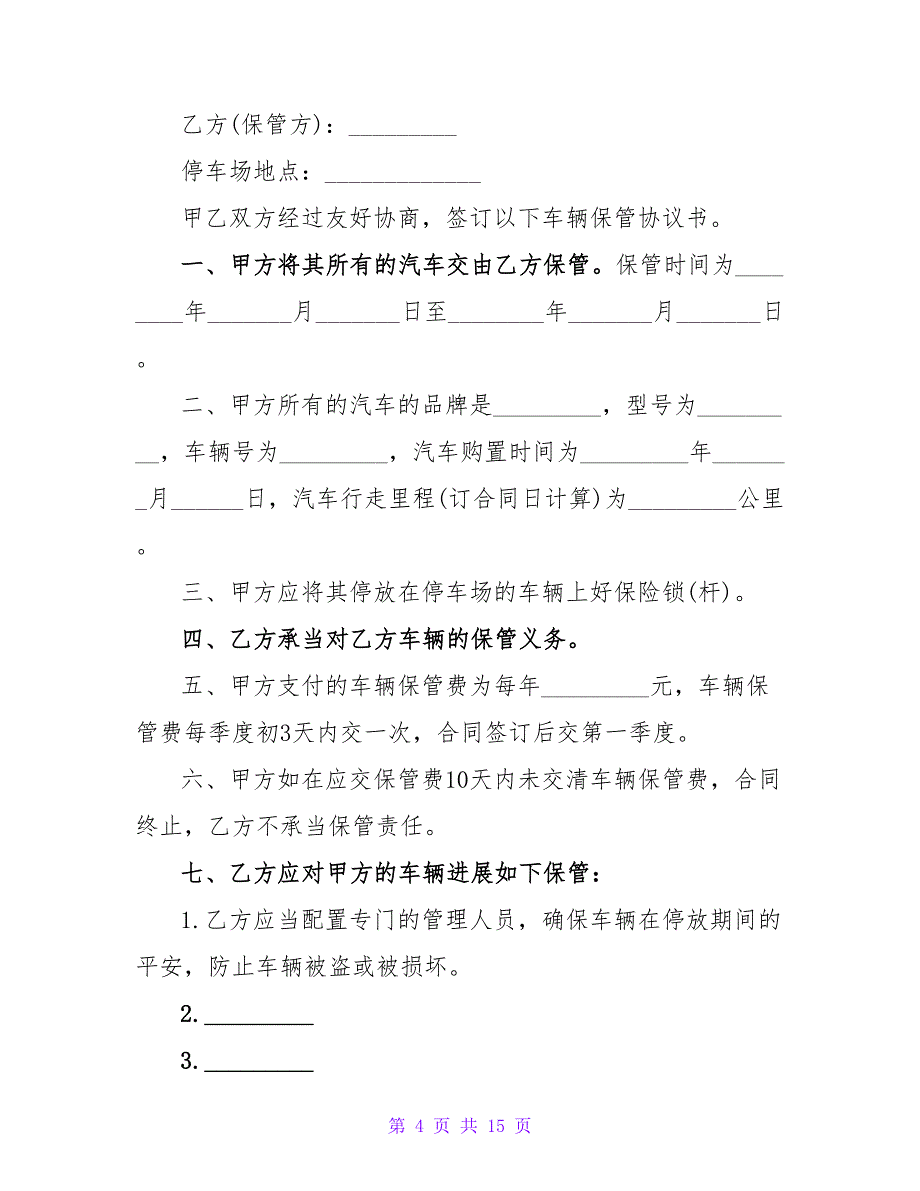 乙方(保管方)：_________
停车场地点：_____________
甲乙双方经过友好协商，签订以下车辆保管协议书。
一、甲方将其所有的汽车交由乙方保管。保管时间为____
____年_______月_______日至________年_______月_______日
。
二、甲方所有的汽车的品牌是_________，型号为_______
__，车辆号为_________，汽车购置时间为_________年______
_月______日，汽车行走里程(订合同日计算)为_________公里
。
三、甲方应将其停放在停车场的车辆上好保险锁(杆)。
四、乙方承当对乙方车辆的保管义务。
五、甲方支付的车辆保管费为每年_________元，车辆保
管费每季度初3天内交一次，合同签订后交第一季度。
六、甲方如在应交保管费10天内未交清车辆保管费，合同
终止，乙方不承当保管责任。
七、乙方应对甲方的车辆进展如下保管：
1.乙方应当配置专门的管理人员，确保车辆在停放期间的
平安，防止车辆被盗或被损坏。
2._________
3._________
第 4 页 共 15 页